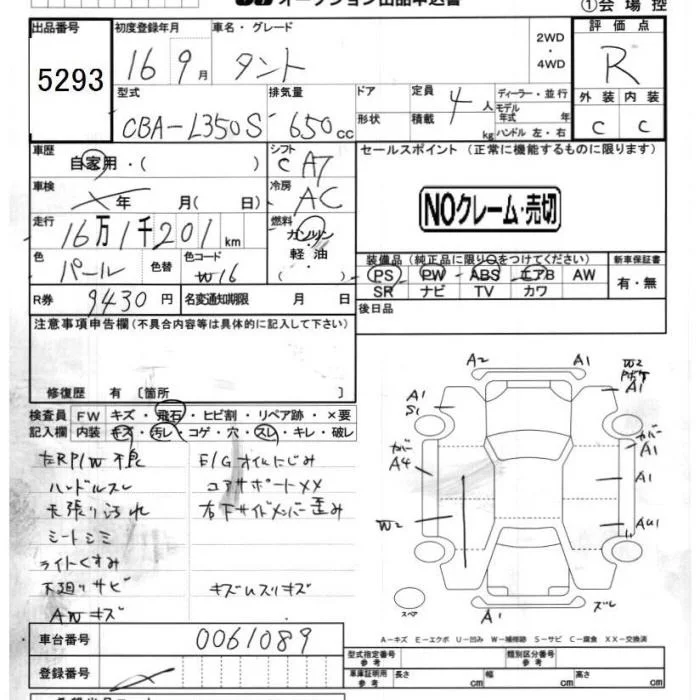 オークション出品申込書
①会場控
出品番号 初度登録年月 車名・グレード 2WD ・ 4WD 評価点
5293 16 9月 タント R
型式 排気量 ドア 定員 4人 ディーラー・並行 外装 内装
CBA-L350S 650cc 形状 積載 kg モデル年式 年 ハンドル 左・右 C C
車歴 自家用・( ) シフト C A7 セールスポイント (正常に機能するものに限ります)
車検 年 月( 日) 冷房 AC
NOクレーム・売切
走行 16万1千201km 燃料 ガソリン・軽油・( )
色 パール 色替 色コード W16
装備品(純正品に限り○をつけてください) 新車保証書
PS PW ABS エアB AW 有・無
SR ナビ TV カワ
R券 9430円 名変通知期限 月 日
後日品
注意事項申告欄(不具合内容等は具体的に記入して下さい)
修復歴 有〔箇所 〕
検査員 FW キズ・飛石・ヒビ割・リペア跡・×要
記入欄 内装 キズ・汚レ・コゲ・穴・スレ・キレ・破レ
左RP/W不良 E/Gオイルにじみ
ハンドルスレ コアサポートXX
天張り汚れ 右下サイドメンバー歪み
シートシミ
ライトくすみ
下廻りサビ キズUスリキズ
AWキズ
A2 A1 W2
A1 S1 A1
カバー A4 カバー A1
A1
W2 AU1
スペア A1 ズレ
A-キズ E-エクボ U-凹み W-補修跡 S-サビ C-腐食 XX-交換済
車台番号 0061089
登録番号
型式指定番号 参考 類別区分番号 参考
車庫証明用 参考 長さ cm 幅 cm 高さ cm